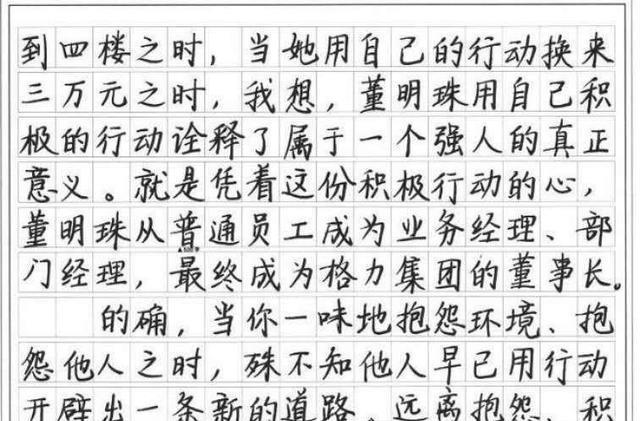 到四楼之时，当她用自己的行动换来
三万元之时，我想，董明珠用自己积
极的行动诠释了属于一个强人的真正
意义。就是凭着这份积极行动的心，
董明珠从普通员工成为业务经理、部
门经理，最终成为格力集团的董事长。
的确，当你一味地抱怨环境、抱
怨他人之时，殊不知他人早已用行动
开辟出一条新的道路。远离抱怨、积